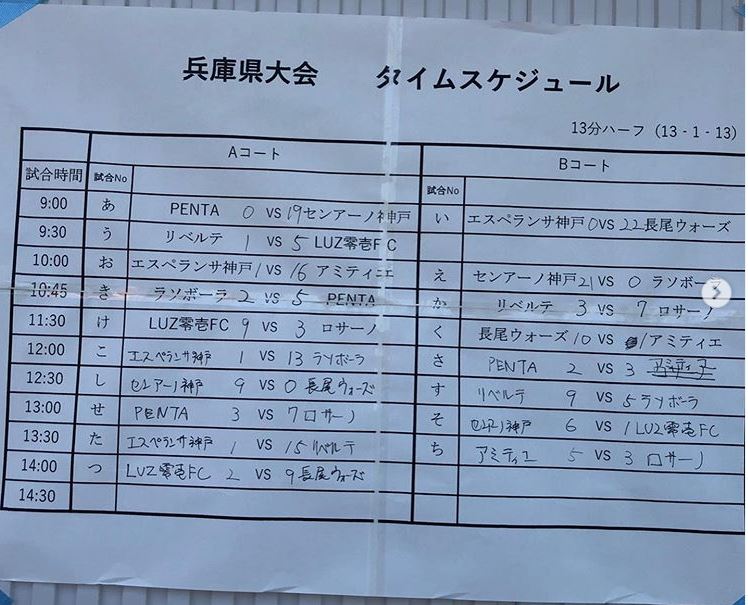 兵庫県大会 タイムスケジュール
13分ハーフ（13-1-13）
Aコート Bコート
試合時間 試合No 試合No
9:00 あ PENTA 0 VS 19 センアーノ神戸 い エスペランサ神戸 0 VS 22 長尾ウォーズ
9:30 う リベルテ 1 VS 5 LUZ零壱FC
10:00 お エスペランサ神戸 1 VS 16 アミティエ え センアーノ神戸 21 VS 0 ラソボーラ
10:45 き ラソボーラ 2 VS 5 PENTA か リベルテ 3 VS 7 ロサーノ
11:30 け LUZ零壱FC 9 VS 3 ロサーノ く 長尾ウォーズ 10 VS 1 アミティエ
12:00 こ エスペランサ神戸 1 VS 13 ラソボーラ さ PENTA 2 VS 3 アミティエ
12:30 し センアーノ神戸 9 VS 0 長尾ウォーズ す リベルテ 9 VS 5 ラソボーラ
13:00 せ PENTA 3 VS 7 ロサーノ そ センアーノ神戸 6 VS 1 LUZ零壱FC
13:30 た エスペランサ神戸 1 VS 15 リベルテ ち アミティエ 5 VS 3 ロサーノ
14:00 つ LUZ零壱FC 2 VS 9 長尾ウォーズ
14:30